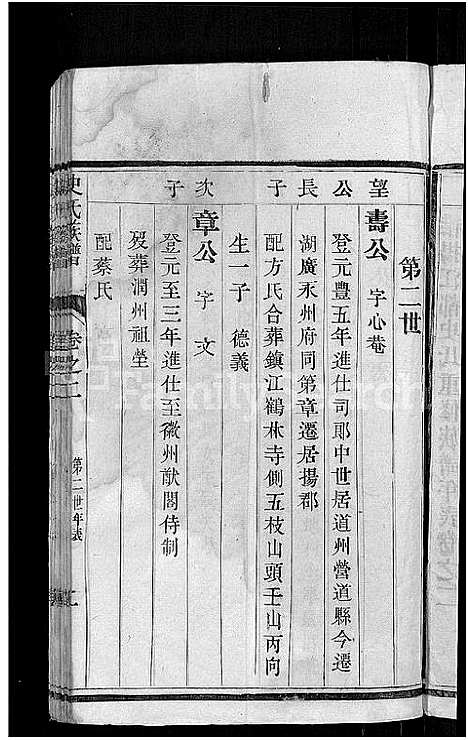 第二世
望公長子次子
壽公 字心菴
登元豐五年進仕司郎中世居道州營道縣今遷
湖廣永州府同第章遷居揚郡
配方氏合葬鎮江鶴林寺側五枝山頭壬山丙向
生一子 德義
章公 字文
登元至三年進仕至徽州猷閣侍制
歿葬潤州祖塋
配蔡氏
史氏族譜
卷之二
第二世年表